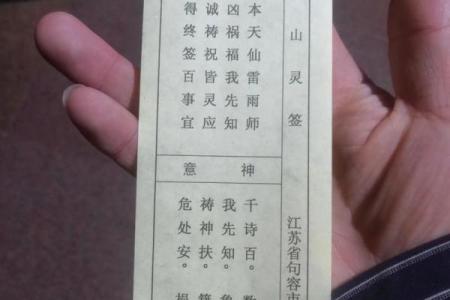 山灵签
江苏省句容市
本天仙雷雨师
凶祸福我先知
诚祷祝皆灵应
得终签百事宜
神意
千诗百。数
我先知。
祷神扶。
危处安。